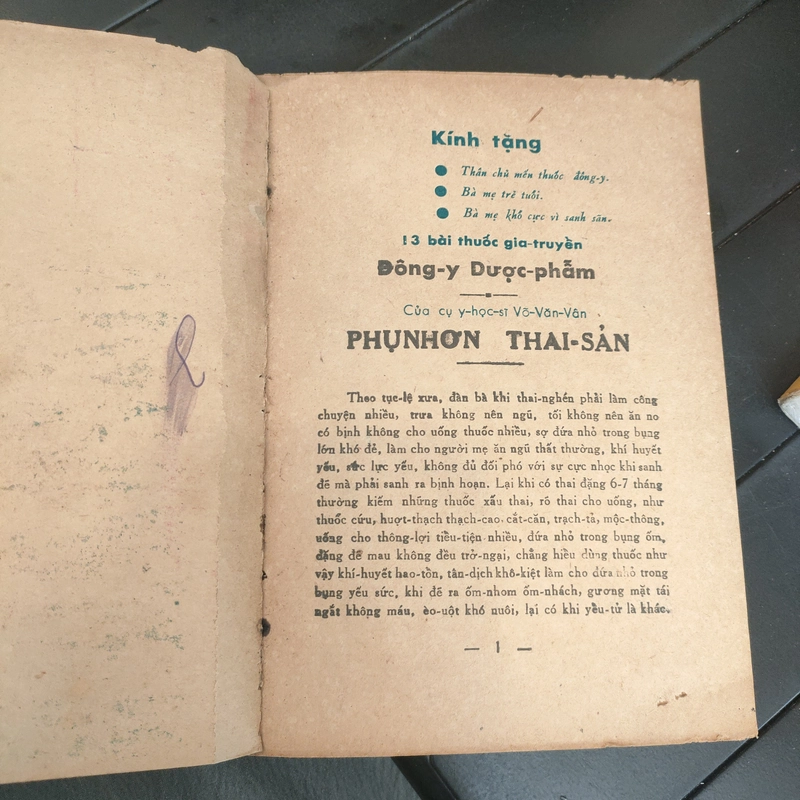 Kính tặng
● Thân chủ mến thuốc đông-y.
● Bà mẹ trẻ tuổi.
● Bà mẹ khổ cực vì sanh sản.
13 bài thuốc gia-truyền
Đông-y Dược-phẫm
Của cụ y-học-sĩ Võ-Văn-Vân
PHỤNHƠN THAI-SẢN
Theo tục-lệ xưa, đàn bà khi thai-nghén phải làm công
chuyện nhiều, trưa không nên ngũ, tối không nên ăn no
có bịnh không cho uống thuốc nhiều, sợ đứa nhỏ trong bụng
lớn khó đẻ, làm cho người mẹ ăn ngũ thất thường, khí huyết
yếu, sức lực yếu, không đủ đối phó với sự cực nhọc khi sanh
đẻ mà phải sanh ra bịnh hoạn. Lại khi có thai đặng 6-7 tháng
thường kiếm những thuốc xấu thai, rõ thai cho uống, như
thuốc cứu, huợt-thạch thạch-cao, cắt-căn, trạch-tả, mộc-thông,
uống cho thông-lợi tiều-tiện nhiều, đứa nhỏ trong bụng ốm,
đặng đẻ mau không đều trở-ngại, chẳng hiều dùng thuốc như
vậy khí-huyết hao-tồn, tân-dịch khô-kiệt làm cho đứa nhỏ trong
bụng yếu sức, khi đẻ ra ốm-nhom ốm-nhách, gương mặt tái
ngắt không máu, èo-uột khó nuôi, lại có khi yểu-tử là khác.
— 1 —